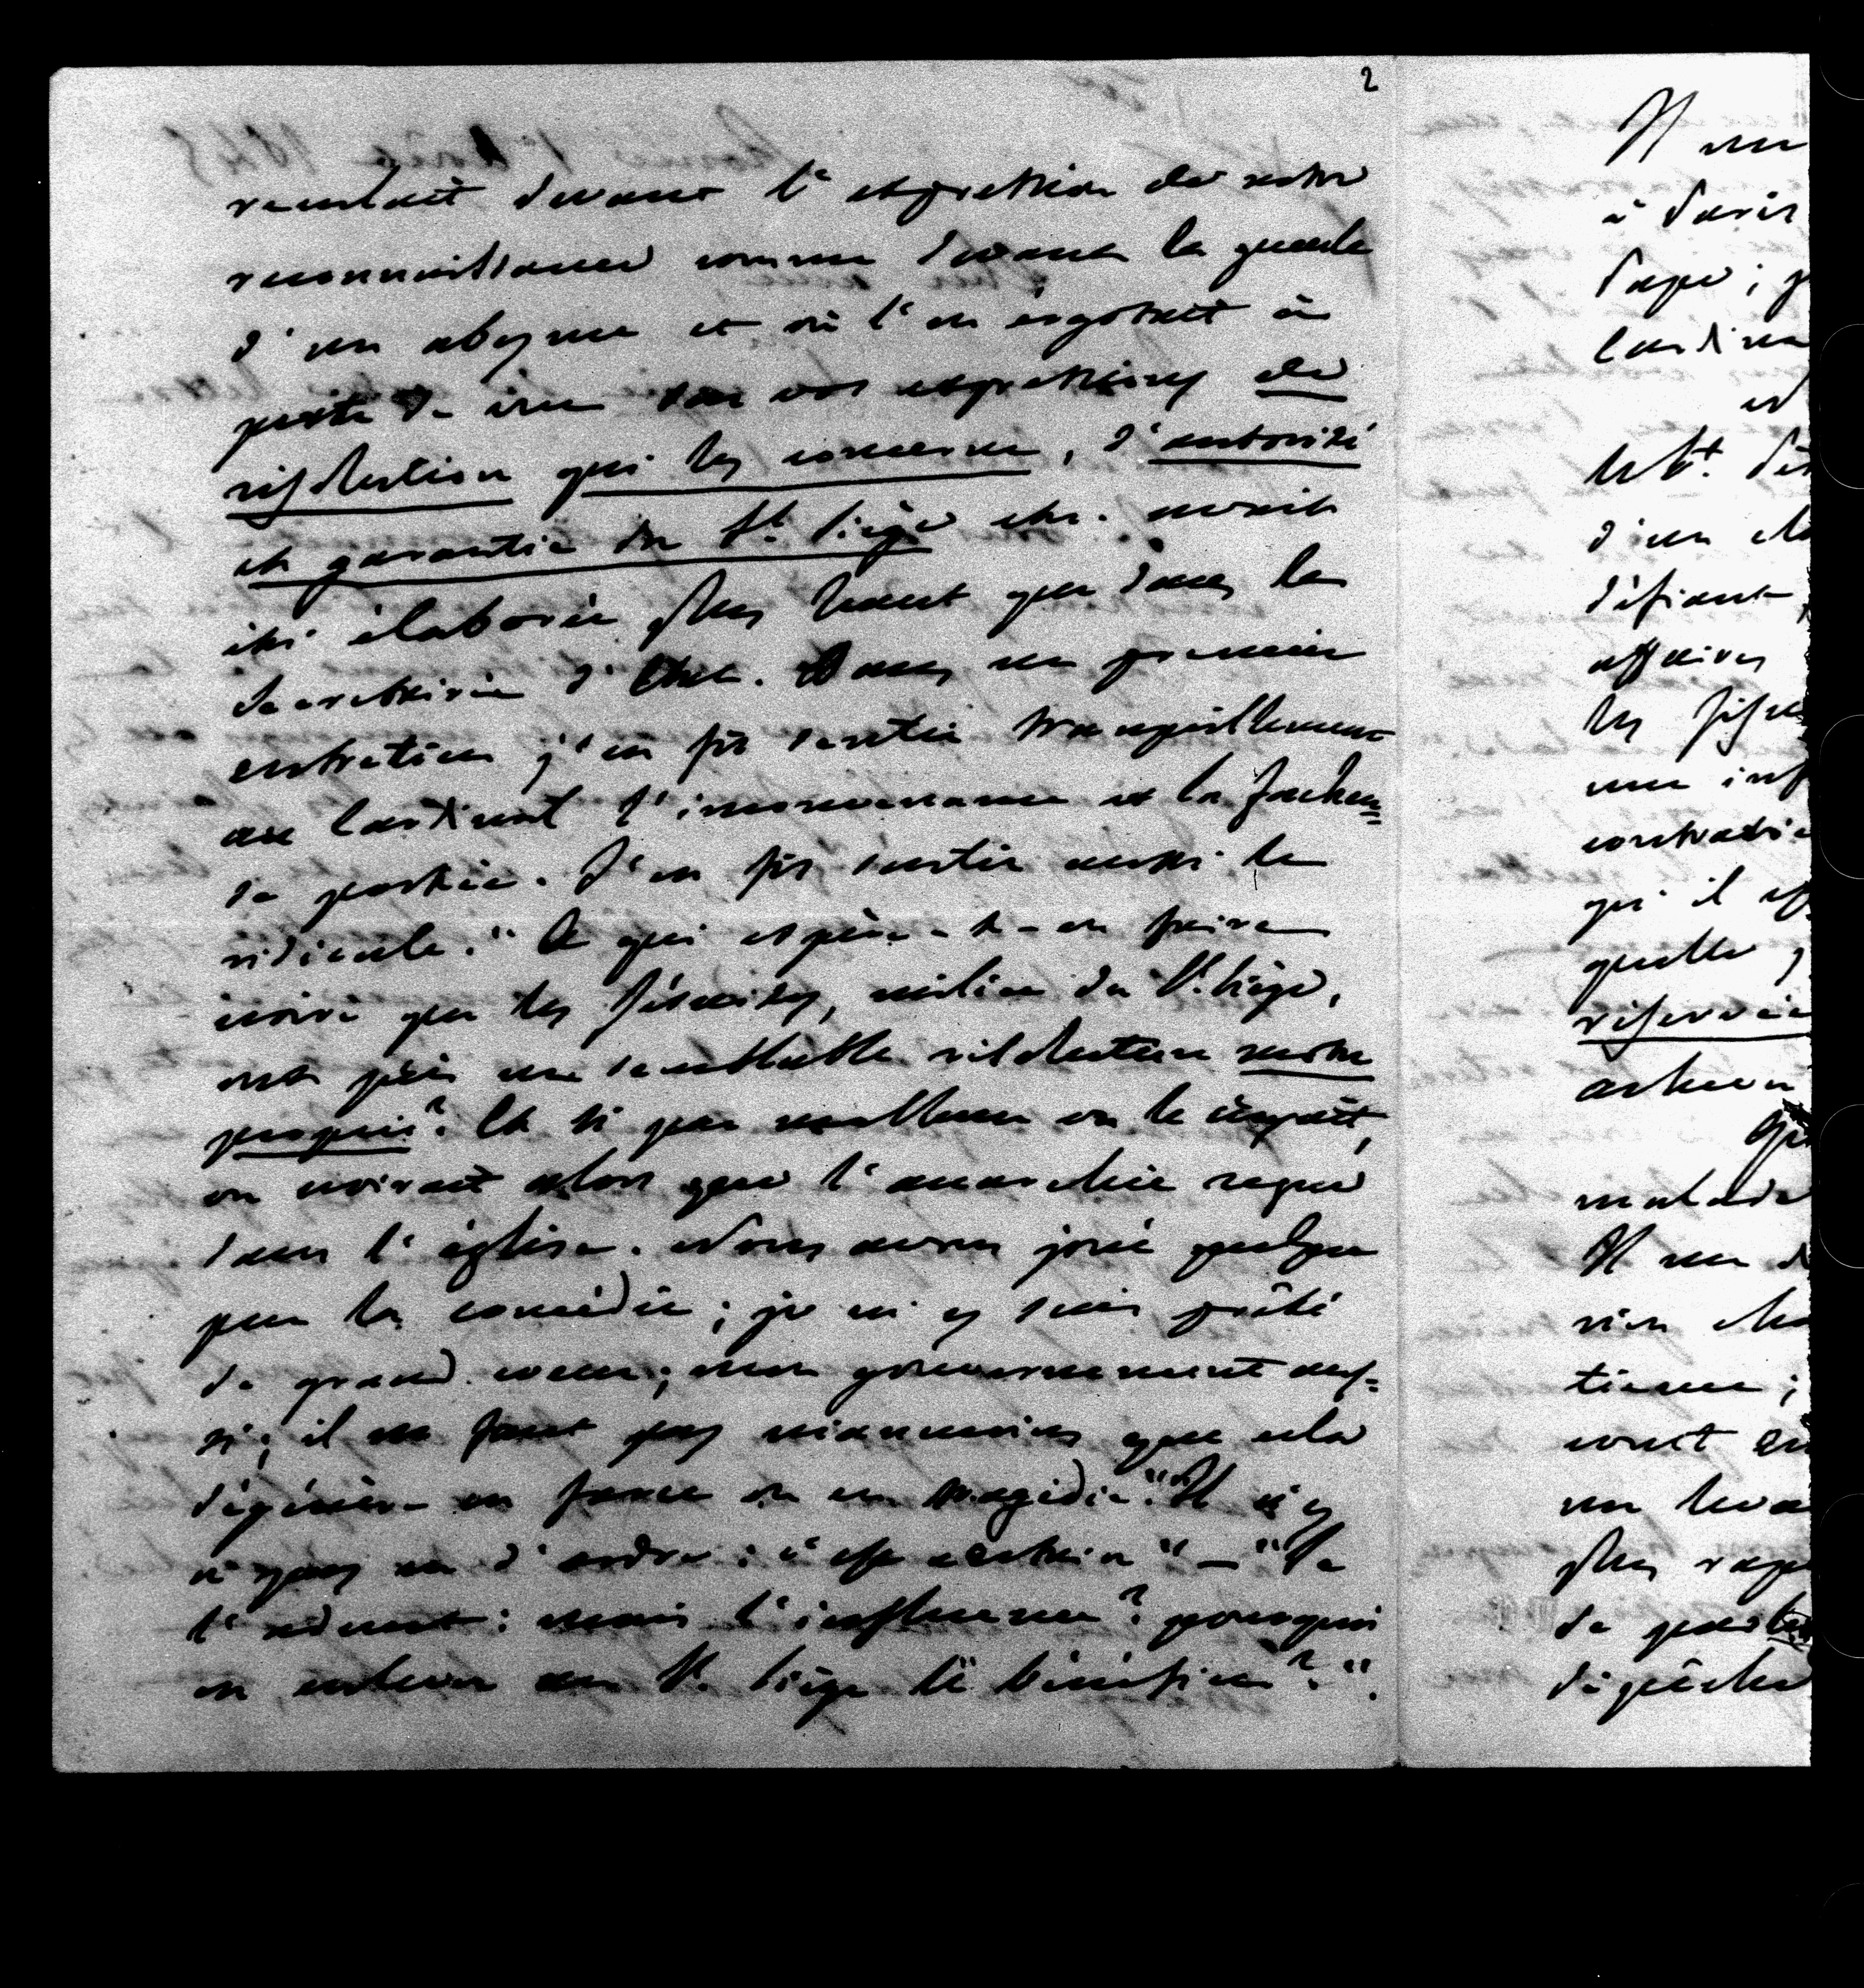 2
reculait devant l'expression de notre
reconnaissance comme devant la gueule
d'un abyme et où l'on ergotait à
perte de vue sur vos expressions de
résolution qui les concerne, d'autorité
et garantie du St. Siège etc. avait
été élaborée plus haut que dans la
Secrétairerie d'Etat. Dans un premier
entretien j'en fis sentir tranquillement
au Cardinal l'inconvenance et la fâcheu=
se portée. J'en fis sentir aussi le
ridicule. "A qui espère-t-on faire
croire que les Jésuites, milice du St. Siège,
ont pris une semblable résolution motu
proprio? Et si par malheur on le croyait,
on croirait alors que l'anarchie règne
dans l'église. Nous avons joué quelque
peu la comédie; je m'y suis prêté
de grand coeur; mon gouvernement aus=
si; il ne faut pas néanmoins que cela
dégénère en farce ou en tragédie." "Il n'y
a pas eu d'ordre: c'est certain" — "Je
l'admets: mais l'influence? pourquoi
en enlever au St. Siège le bénéfice?".
Il me
à Paris
Pape;
Cardina
et
le St.
d'un
défiant,
affaires
les Jésu
une inf
contradic
qu'il
quelle
réservée
malade
Il me d
rien
tienne;
un
plus
de
dépêche